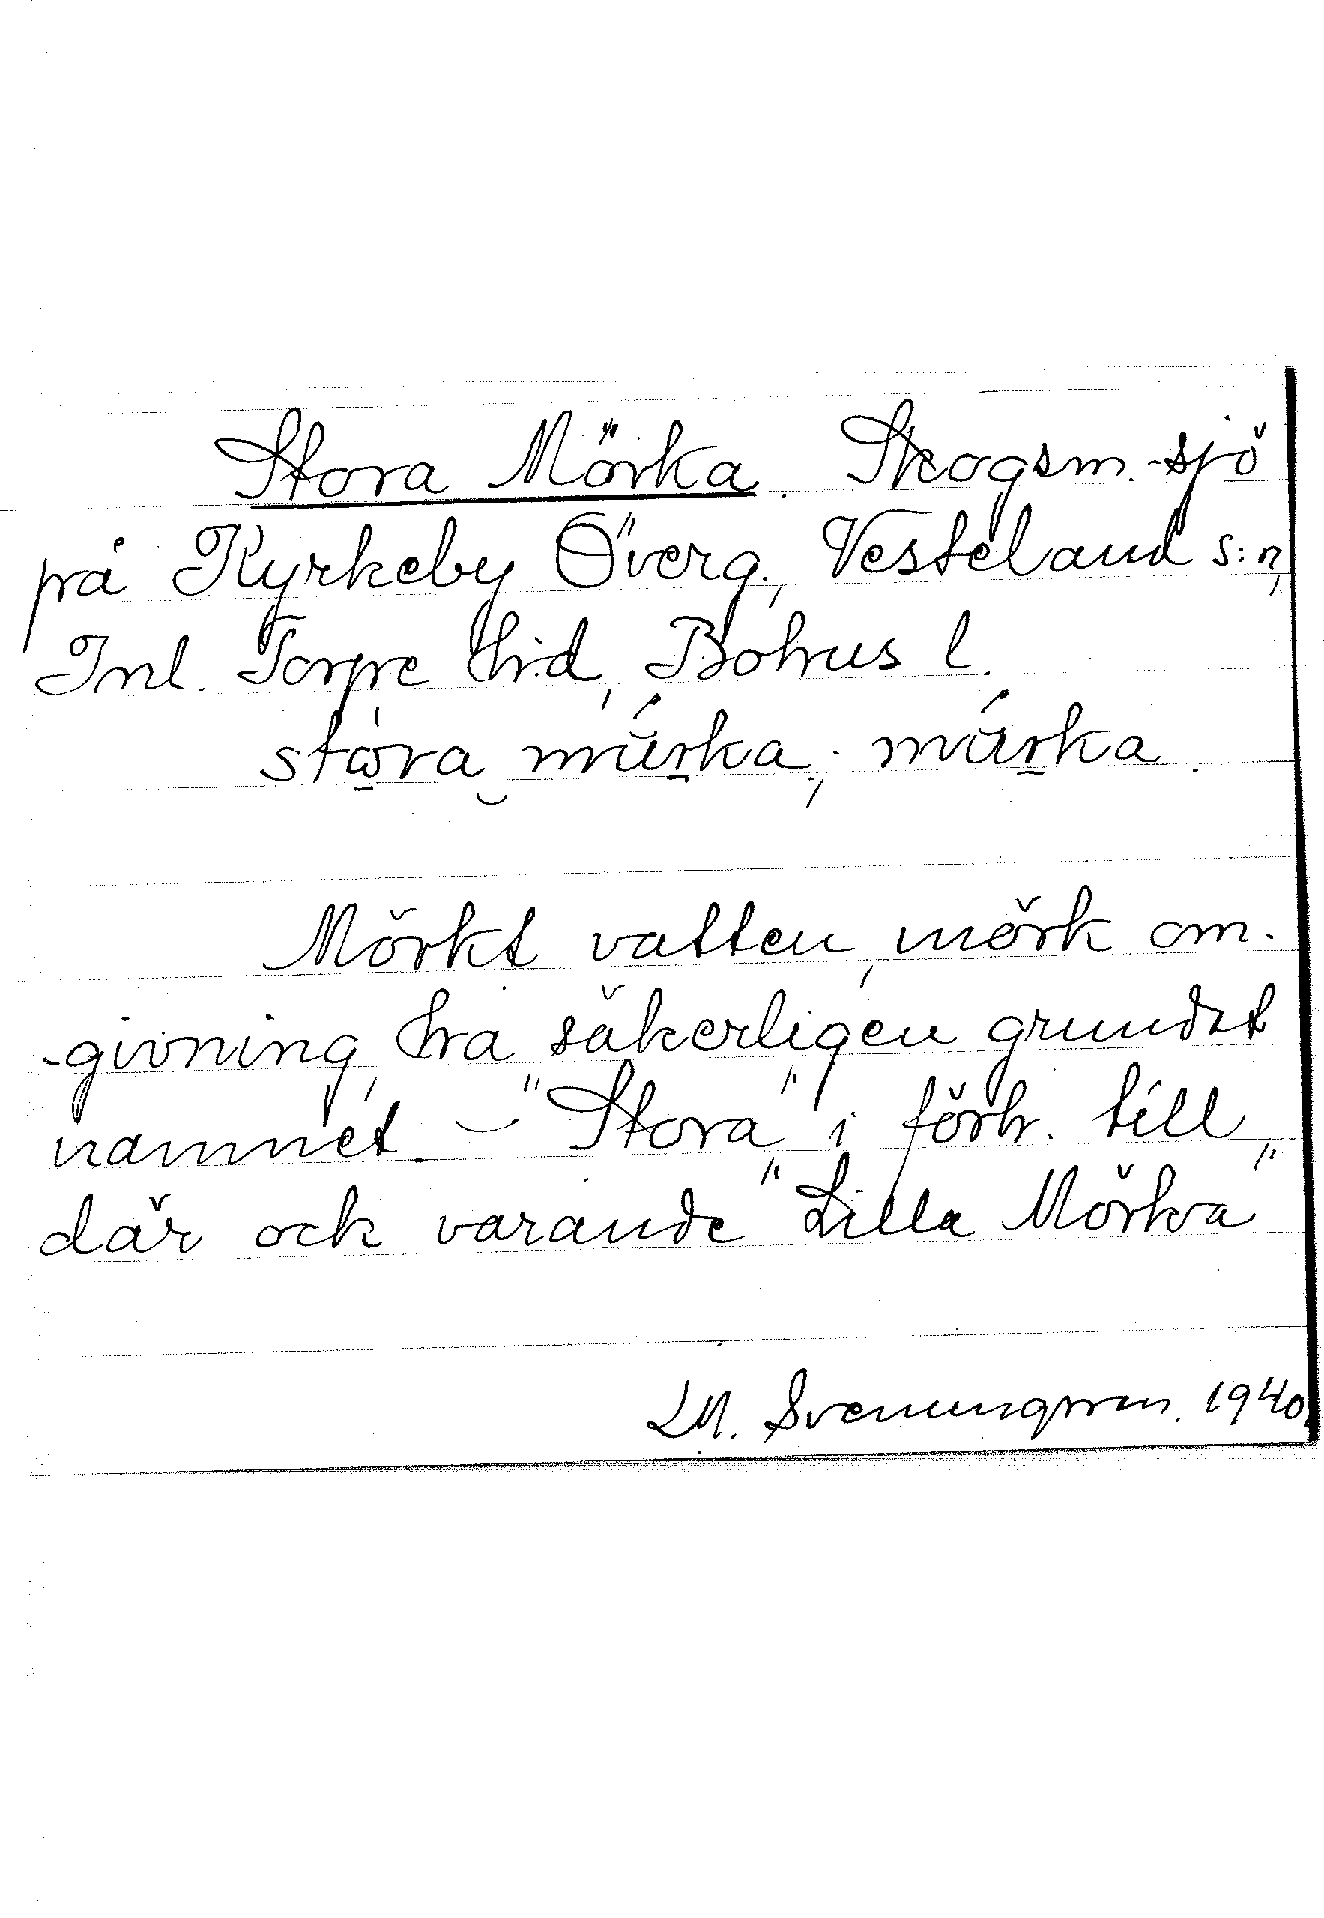 Stora Mörka. Skogsm.-sjö
på Kyrkeby Överg., Vesteland s:n,
Inl. Torpe h:d, Bohus l.
stora mürka; mürka.
Mörkt vatten, mörk om-
-givning, ha säkerligen grundat
namnet. – "Stora" i förh. till
där ock varande "Lilla Mörka"
LM. Svenungsson. 1940.